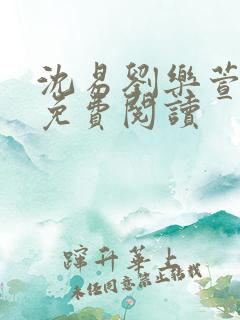 沈易劉樂萱
免費閱讀
蹿升華上
未经同意禁止转载